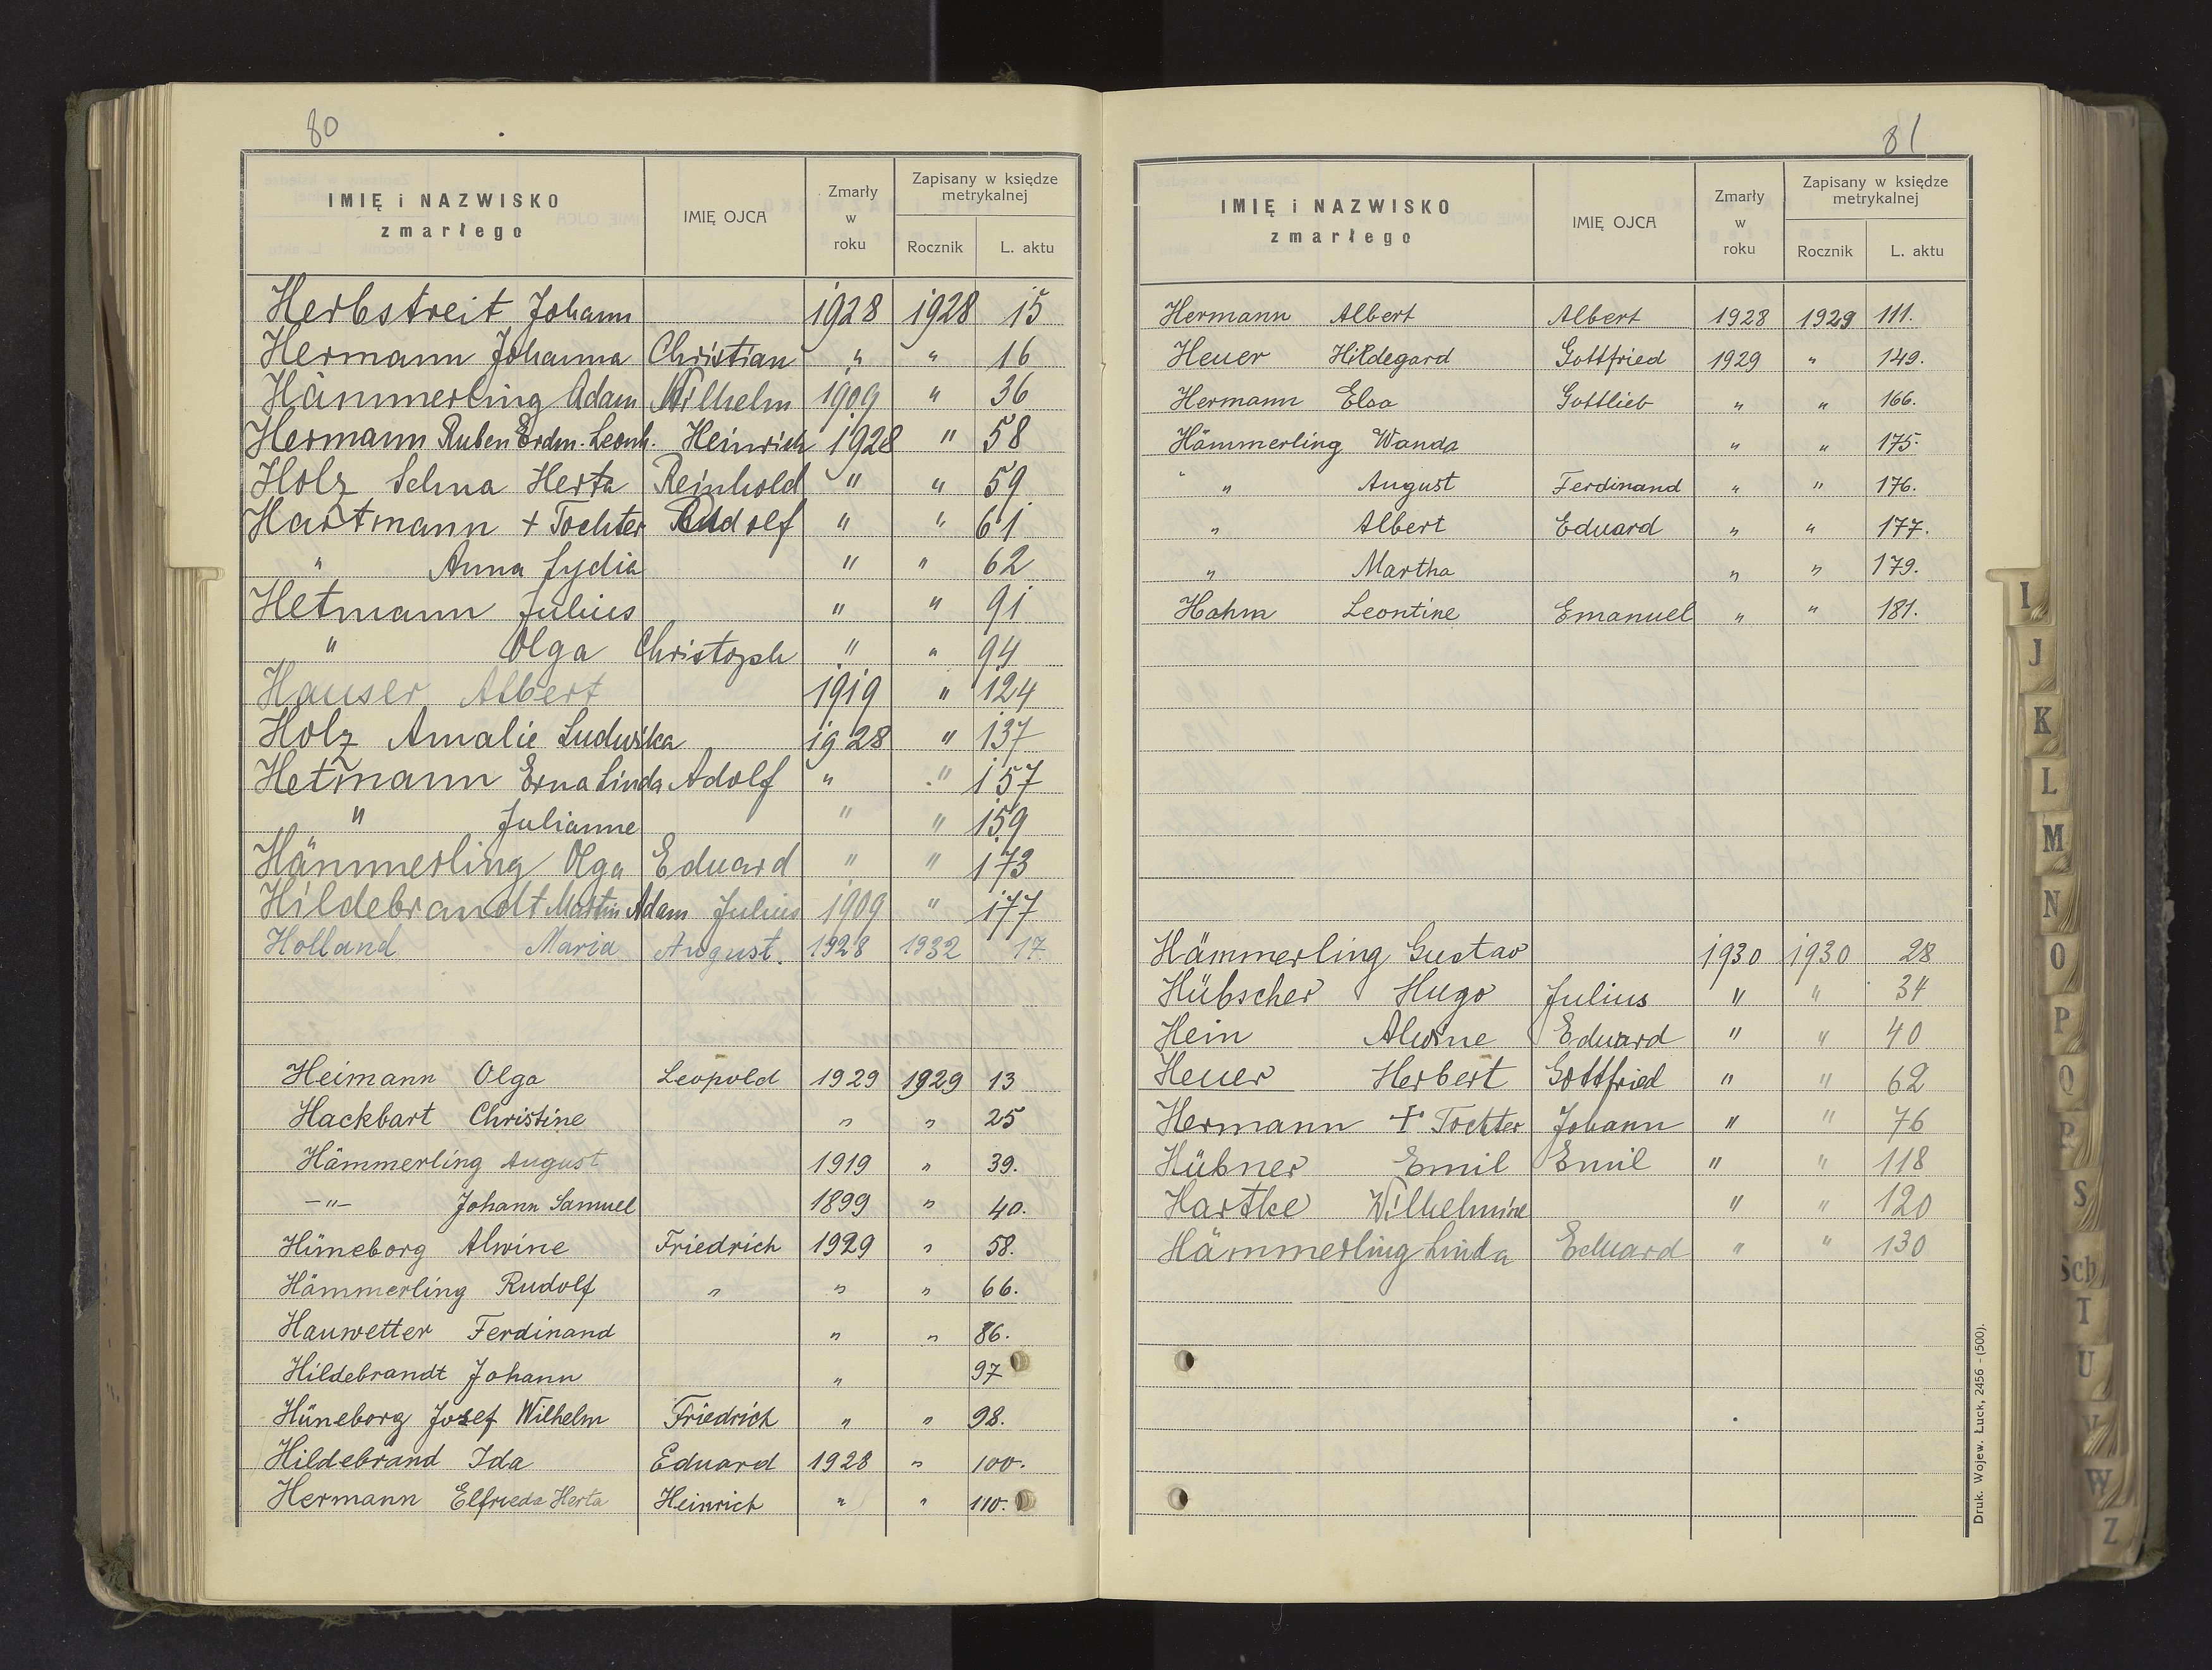 80
IMIĘ i NAZWISKO zmarłego | IMIĘ OJCA | Zmarły w roku | Zapisany w księdze metrykalnej Rocznik | L. aktu
Herbstreit Johann 1928 1928 15
Hermann Johanna Christian " " 16
Hämmerling Adam Wilhelm 1909 " 36
Hermann Ruben Erdm. Leonh. Heinrich 1928 " 58
Holz Selma Herta Reinhold " " 59
Hartmann + Tochter Rudolf " " 61
" Anna Lydia " " 62
Hetmann Julius " " 91
" Olga Christoph " " 94
Hauser Albert 1919 " 124
Holz Amalie Ludwika 1928 " 137
Hetmann Erna Linda Adolf " " 157
" Julianne " " 159
Hämmerling Olga Eduard " " 173
Hildebrandt Martin Adam Julius 1909 " 177
Holland Maria August. 1928 1932 17
Heimann Olga Leopold 1929 1929 13
Hackbart Christine " " 25
Hämmerling August 1919 " 39.
-"- Johann Samuel 1899 " 40.
Hüneborg Alwine Friedrich 1929 " 58.
Hämmerling Rudolf " " " 66.
Hauwetter Ferdinand " " 86.
Hildebrandt Johann " 97
Hüneborg Josef Wilhelm Friedrich " " 98.
Hildebrand Ida Eduard 1928 " 100.
Hermann Elfrieda Herta Heinrich " " 110.
81
IMIĘ i NAZWISKO zmarłego | IMIĘ OJCA | Zmarły w roku | Zapisany w księdze metrykalnej Rocznik | L. aktu
Hermann Albert Albert 1928 1929 111.
Heuer Hildegard Gottfried 1929 " 149.
Hermann Elsa Gottlieb " " 166.
Hämmerling Wanda " " 175.
" August Ferdinand " " 176.
" Albert Eduard " " 177.
" Martha " " 179.
Hahm Leontine Emanuel " " 181.
Hämmerling Gustav 1930 1930 28
Hübscher Hugo Julius " " 34
Hein Alwine Eduard " " 40
Heuer Herbert Gottfried " " 62
Hermann + Tochter Johann " " 76
Hübner Emil Emil " " 118
Hartke Wilhelmine " " 120
Hämmerling Linda Eduard " " 130
Druk. Wojew. Łuck, 2456 - (500).
I
J
K
L
M
N
O
P
Q
R
S
Sch
T
U
V
W
Z